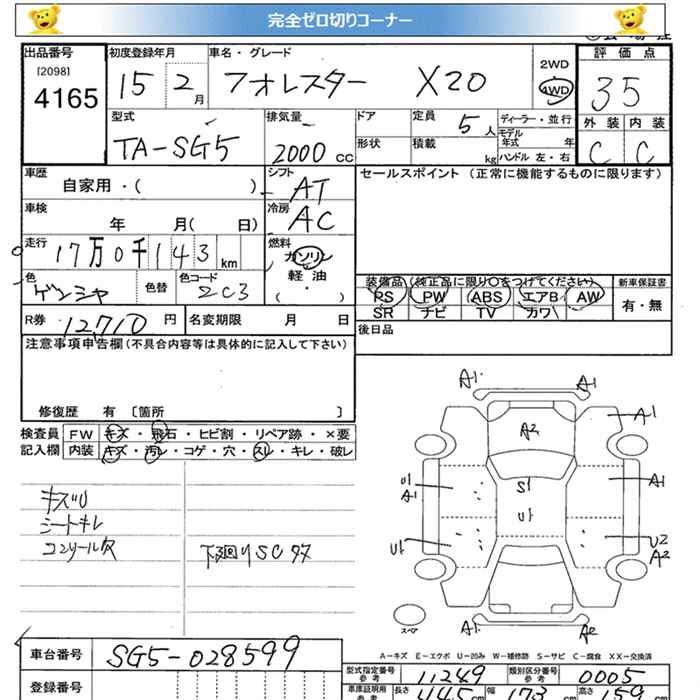 完全ゼロ切りコーナー
出品番号 初度登録年月 車名・グレード 評価点
[2098]
4165
15 2月 フォレスター X20
2WD
4WD
35
外装 内装
C C
型式 排気量 ドア 定員 5人 ディーラー・並行
モデル年式 年
形状 積載 kg ハンドル 左・右
TA-SG5 2000cc
車歴 シフト セールスポイント(正常に機能するものに限ります)
自家用・( ) AT
車検 冷房
年 月( 日) AC
走行 燃料
17万0千143km ガソリン
軽油
( ・ )
色 色替 色コード 2C3
装備品(純正品に限り○をつけてください) 新車保証書
PS PW ABS エアB AW 有・無
SR ナビ TV カワ
R券 12710円 名変期限 月 日 後日品
注意事項申告欄(不具合内容等は具体的に記入して下さい)
修復歴 有 〔箇所 〕
検査員 FW キズ・飛石・ヒビ割・リペア跡・×要
記入欄 内装 キズ・汚レ・コゲ・穴・スレ・キレ・破レ
A1 A1
A1
A2
A1
A1
S1
シートキレ
U2
A2
A1 A2
スペア
A-キズ E-エクボ U-凹み W-補修跡 S-サビ C-腐食 XX-交換済
車台番号 SG5-028599
登録番号
型式指定番号 参考 11249 類別区分番号 参考 0005
車庫証明用 参考 長さ 445cm 幅 173cm 高さ 159